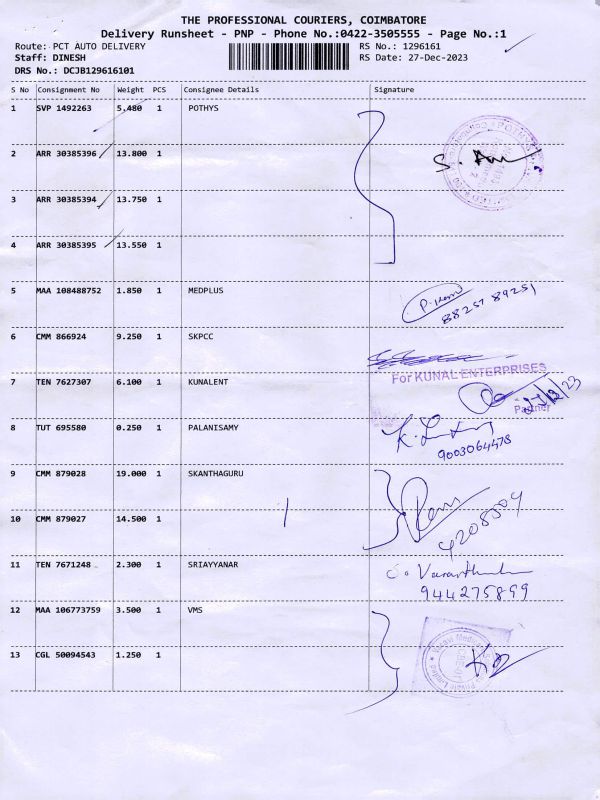 THE PROFESSIONAL COURIERS, COIMBATORE
Delivery Runsheet - PNP - Phone No.:0422-3505555 - Page No.:1
Route: PCT AUTO DELIVERY RS No.: 1296161
Staff: DINESH RS Date: 27-Dec-2023
DRS No.: DCJB129616101
S No Consignment No Weight PCS Consignee Details Signature
1 SVP 1492263 5.480 1 POTHYS
2 ARR 30385396 13.800 1
3 ARR 30385394 13.750 1
4 ARR 30385395 13.550 1
5 MAA 108488752 1.850 1 MEDPLUS
88257 89251
6 CMM 866924 9.250 1 SKPCC
For KUNAL ENTERPRISES
7 TEN 7627307 6.100 1 KUNALENT
Partner
8 TUT 695580 0.250 1 PALANISAMY
9003064478
9 CMM 879028 19.000 1 SKANTHAGURU
10 CMM 879027 14.500 1
11 TEN 7671248 2.300 1 SRIAYYANAR
944275899
12 MAA 106773759 3.500 1 VMS
13 CGL 50094543 1.250 1